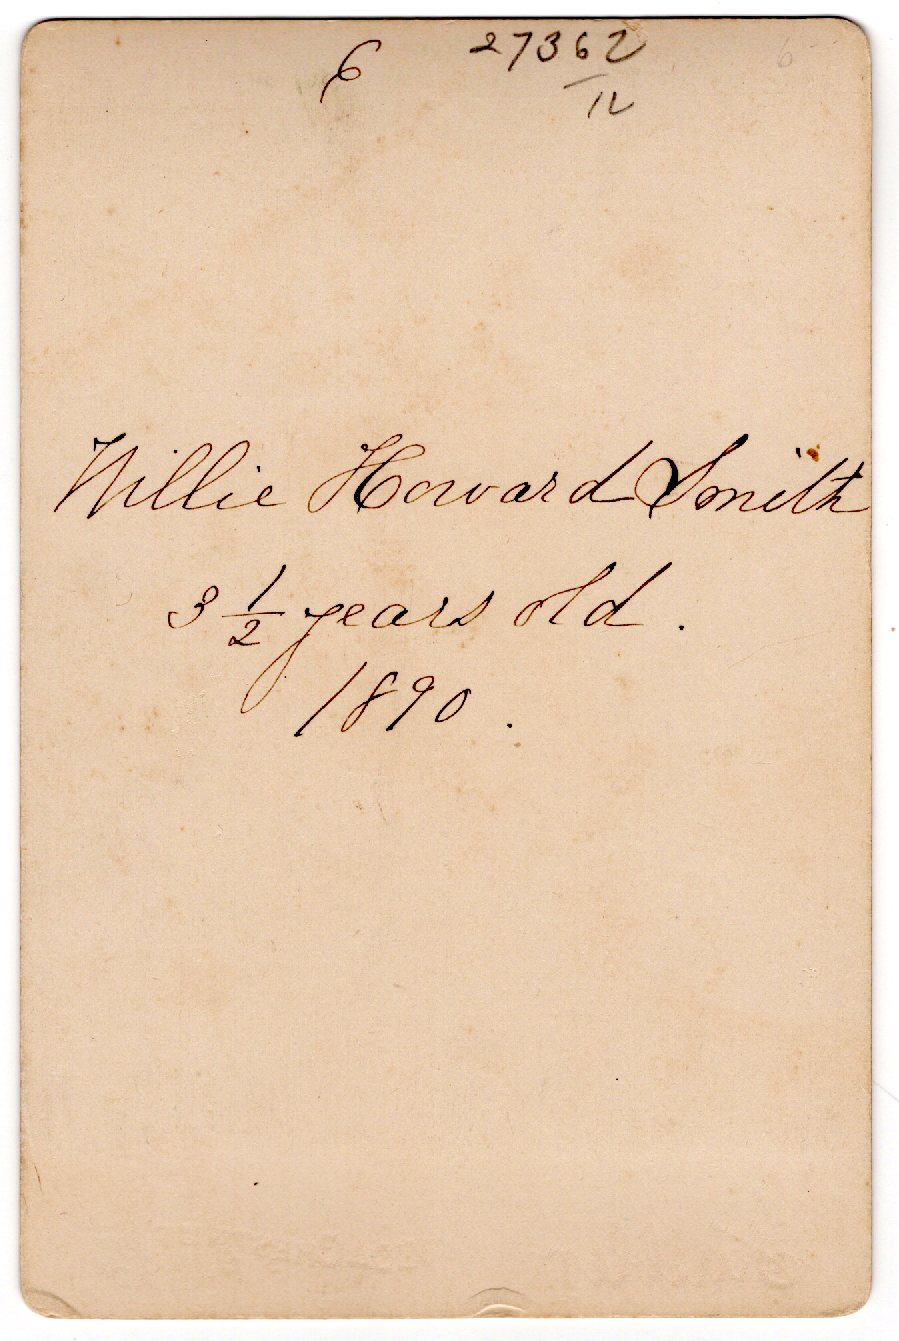 6 27362 6
12
Willie Howard Smith
3 1/2 years old.
1890.